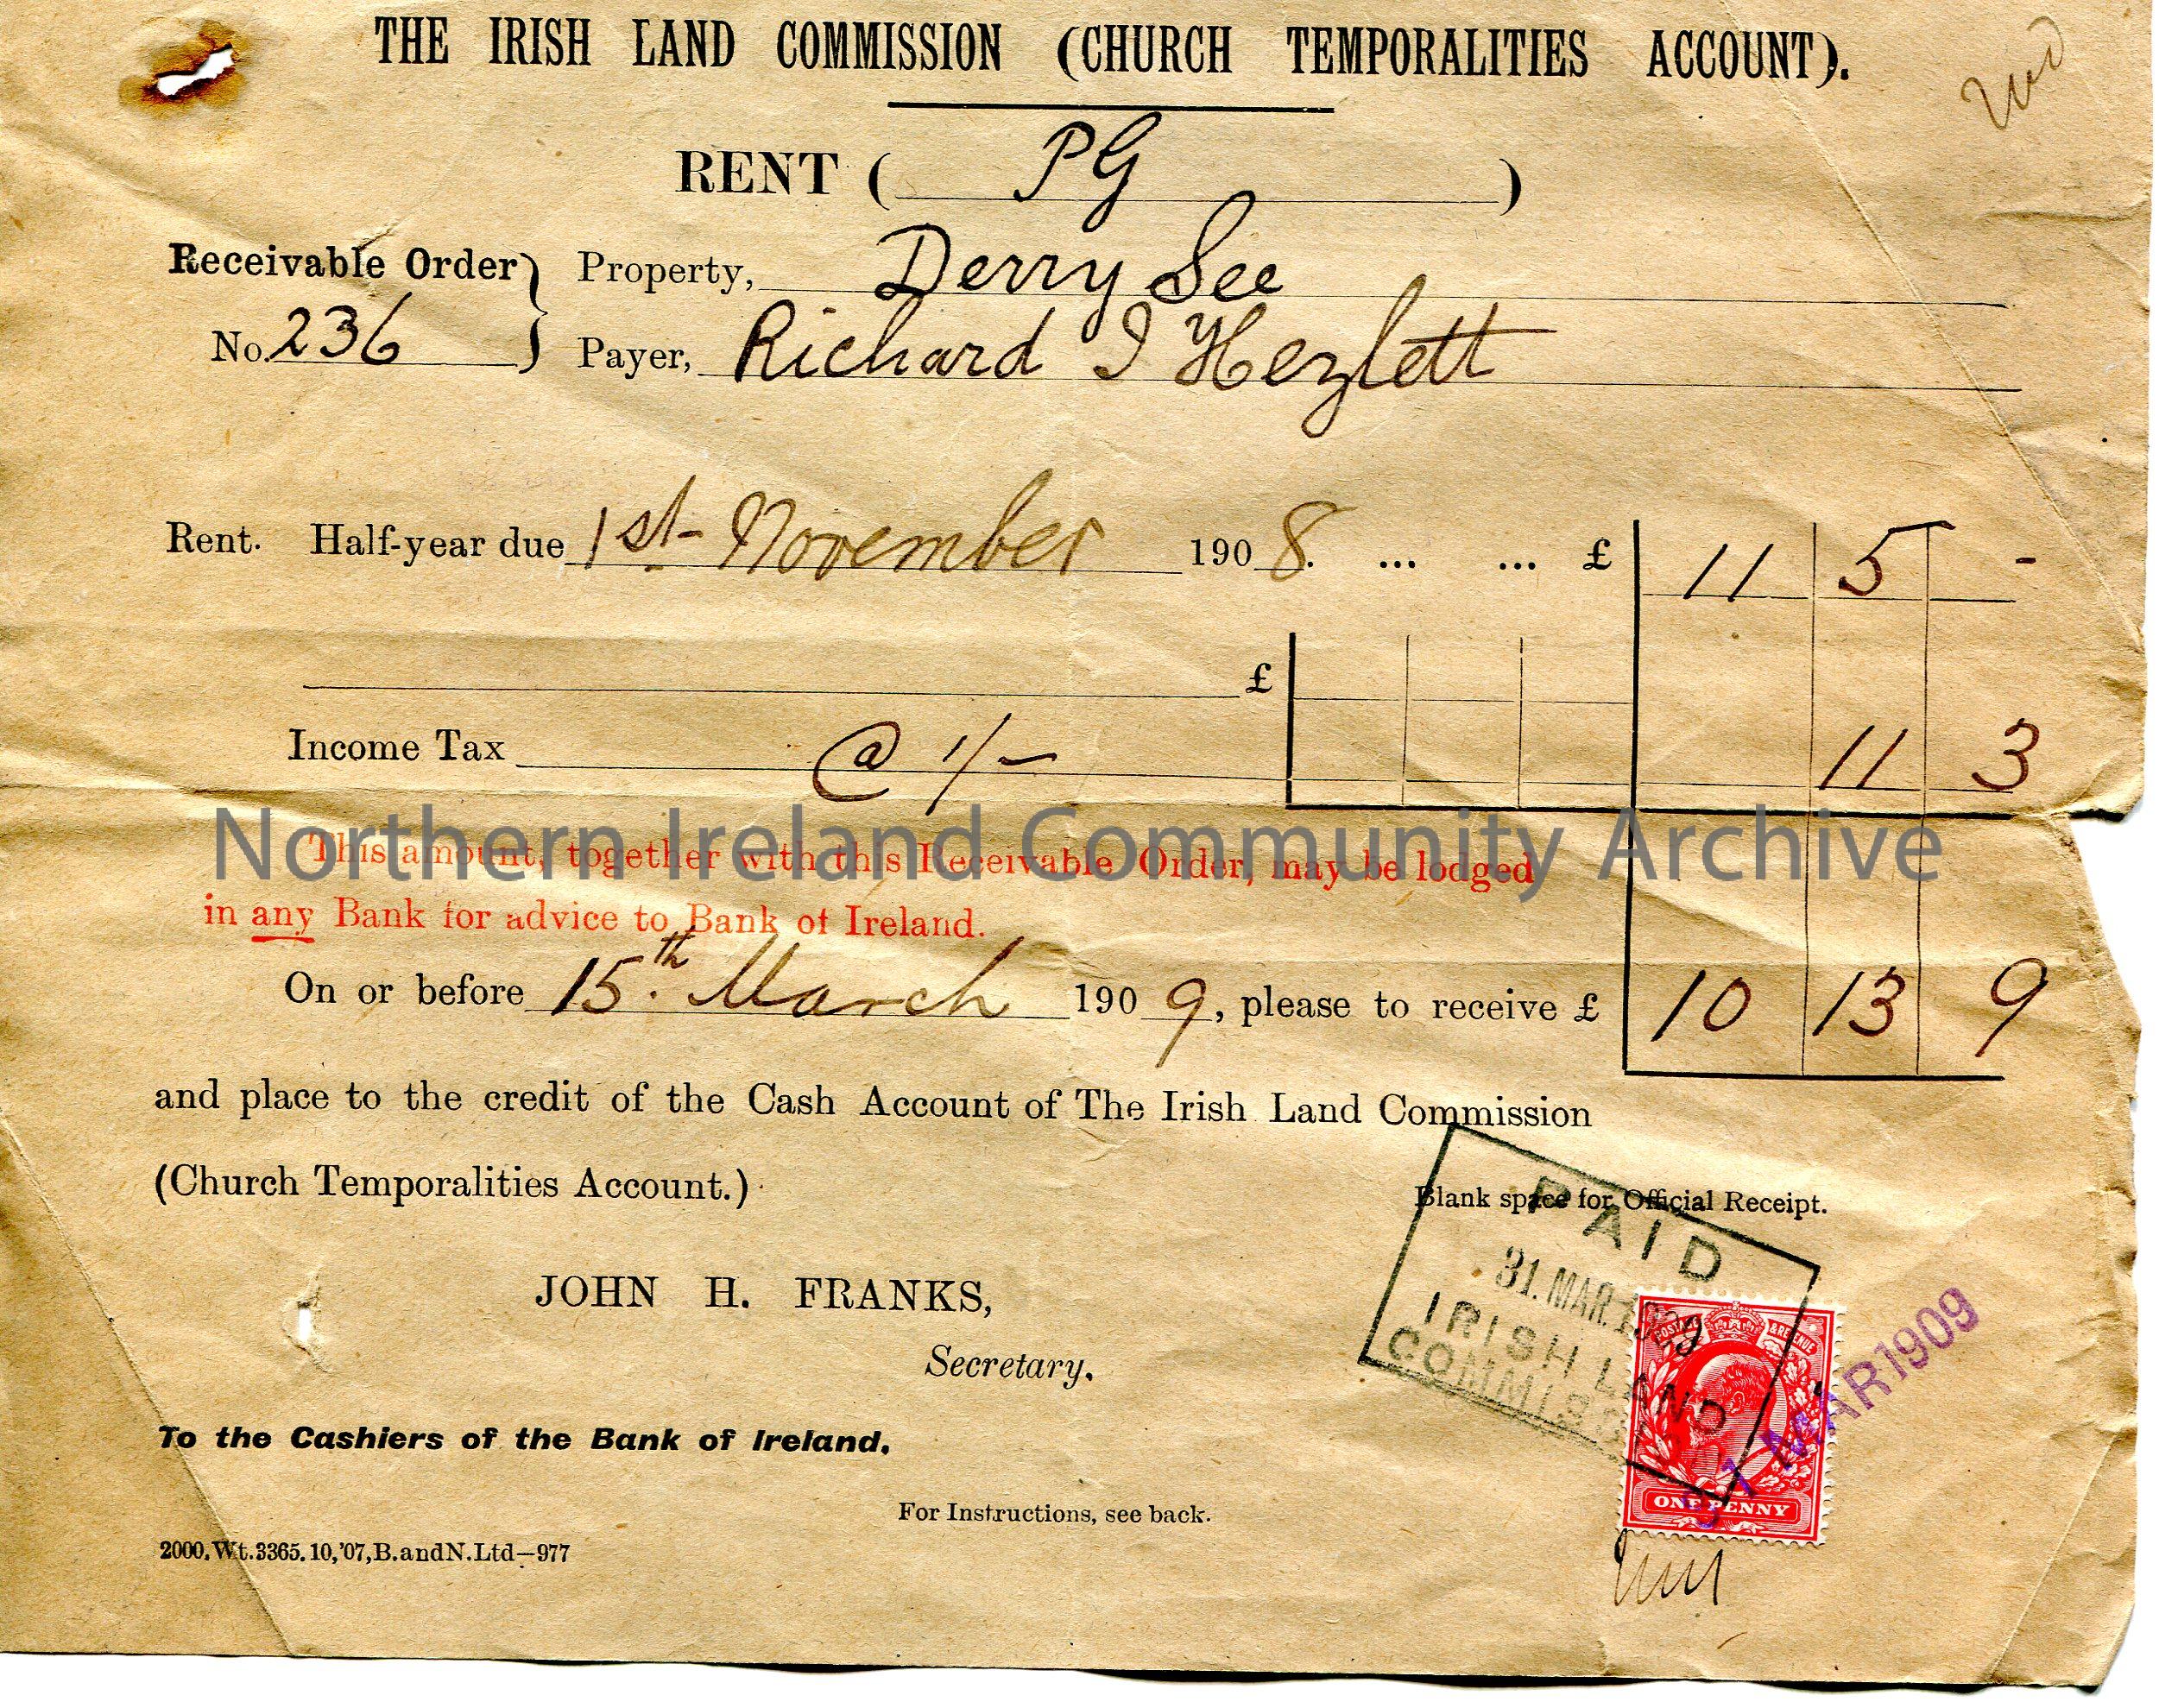 THE IRISH LAND COMMISSION (CHURCH TEMPORALITIES ACCOUNT).
RENT ( PG )
Receivable Order } Property, Derry See
No. 236 Payer, Richard I Hezlett
Rent. Half-year due 1st November 1908. ... ... £ 11 5 -
£
Income Tax @ 1/- 11 3
Northern Ireland Community Archive
This amount, together with this Receivable Order, may be lodged
in any Bank for advice to Bank of Ireland.
On or before 15th March 1909, please to receive £ 10 13 9
and place to the credit of the Cash Account of The Irish Land Commission
(Church Temporalities Account.)
Blank space for Official Receipt.
PAID
31.MAR.1909
IRISH LAND
COMMISSION
JOHN H. FRANKS,
Secretary.
POSTAGE & REVENUE
ONE PENNY
31 MAR 1909
To the Cashiers of the Bank of Ireland.
For Instructions, see back.
2000.Wt.3365.10,'07,B.andN.Ltd—977